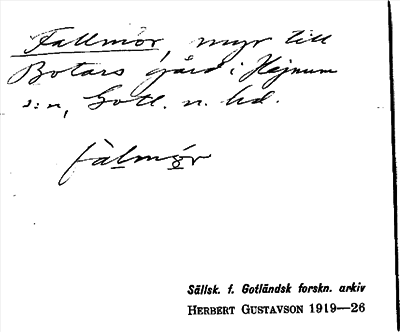 Fallmor, myr till
Botars gård i Hejnum
s:n, Gotl. n. hd.
fàlmór
Sällsk. f. Gotländsk forskn. arkiv
HERBERT GUSTAVSON 1919—26